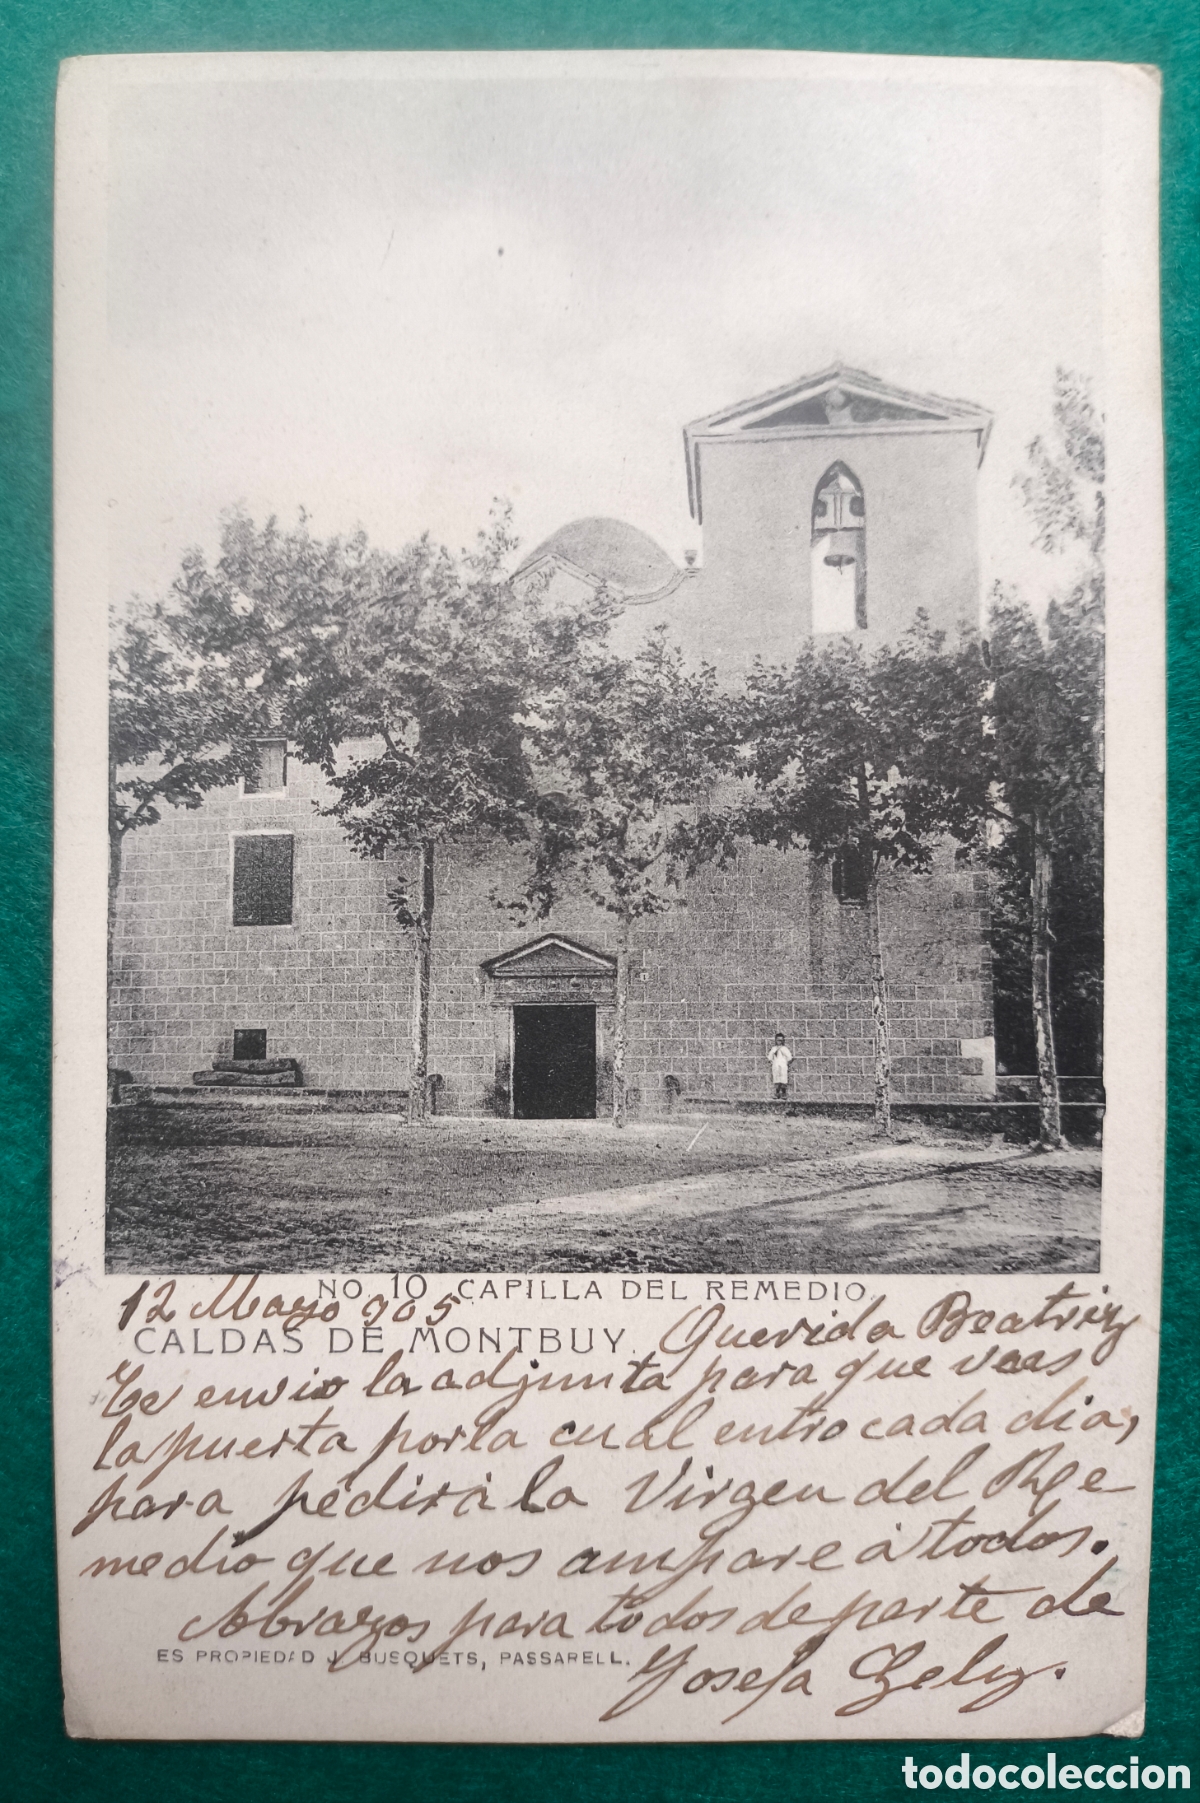 NO. 10. CAPILLA DEL REMEDIO.
CALDAS DE MONTBUY.
12 Mayo 905
Querida Beatriz
Te envio la adjunta para que veas
la puerta por la cual entro cada dia,
para pédir á la Virgen del Re-
medio que nos ampare á todos.
Abrazos para todos de parte de
Josefa
ES PROPIEDAD J. BUSQUETS, PASSARELL.
todocoleccion